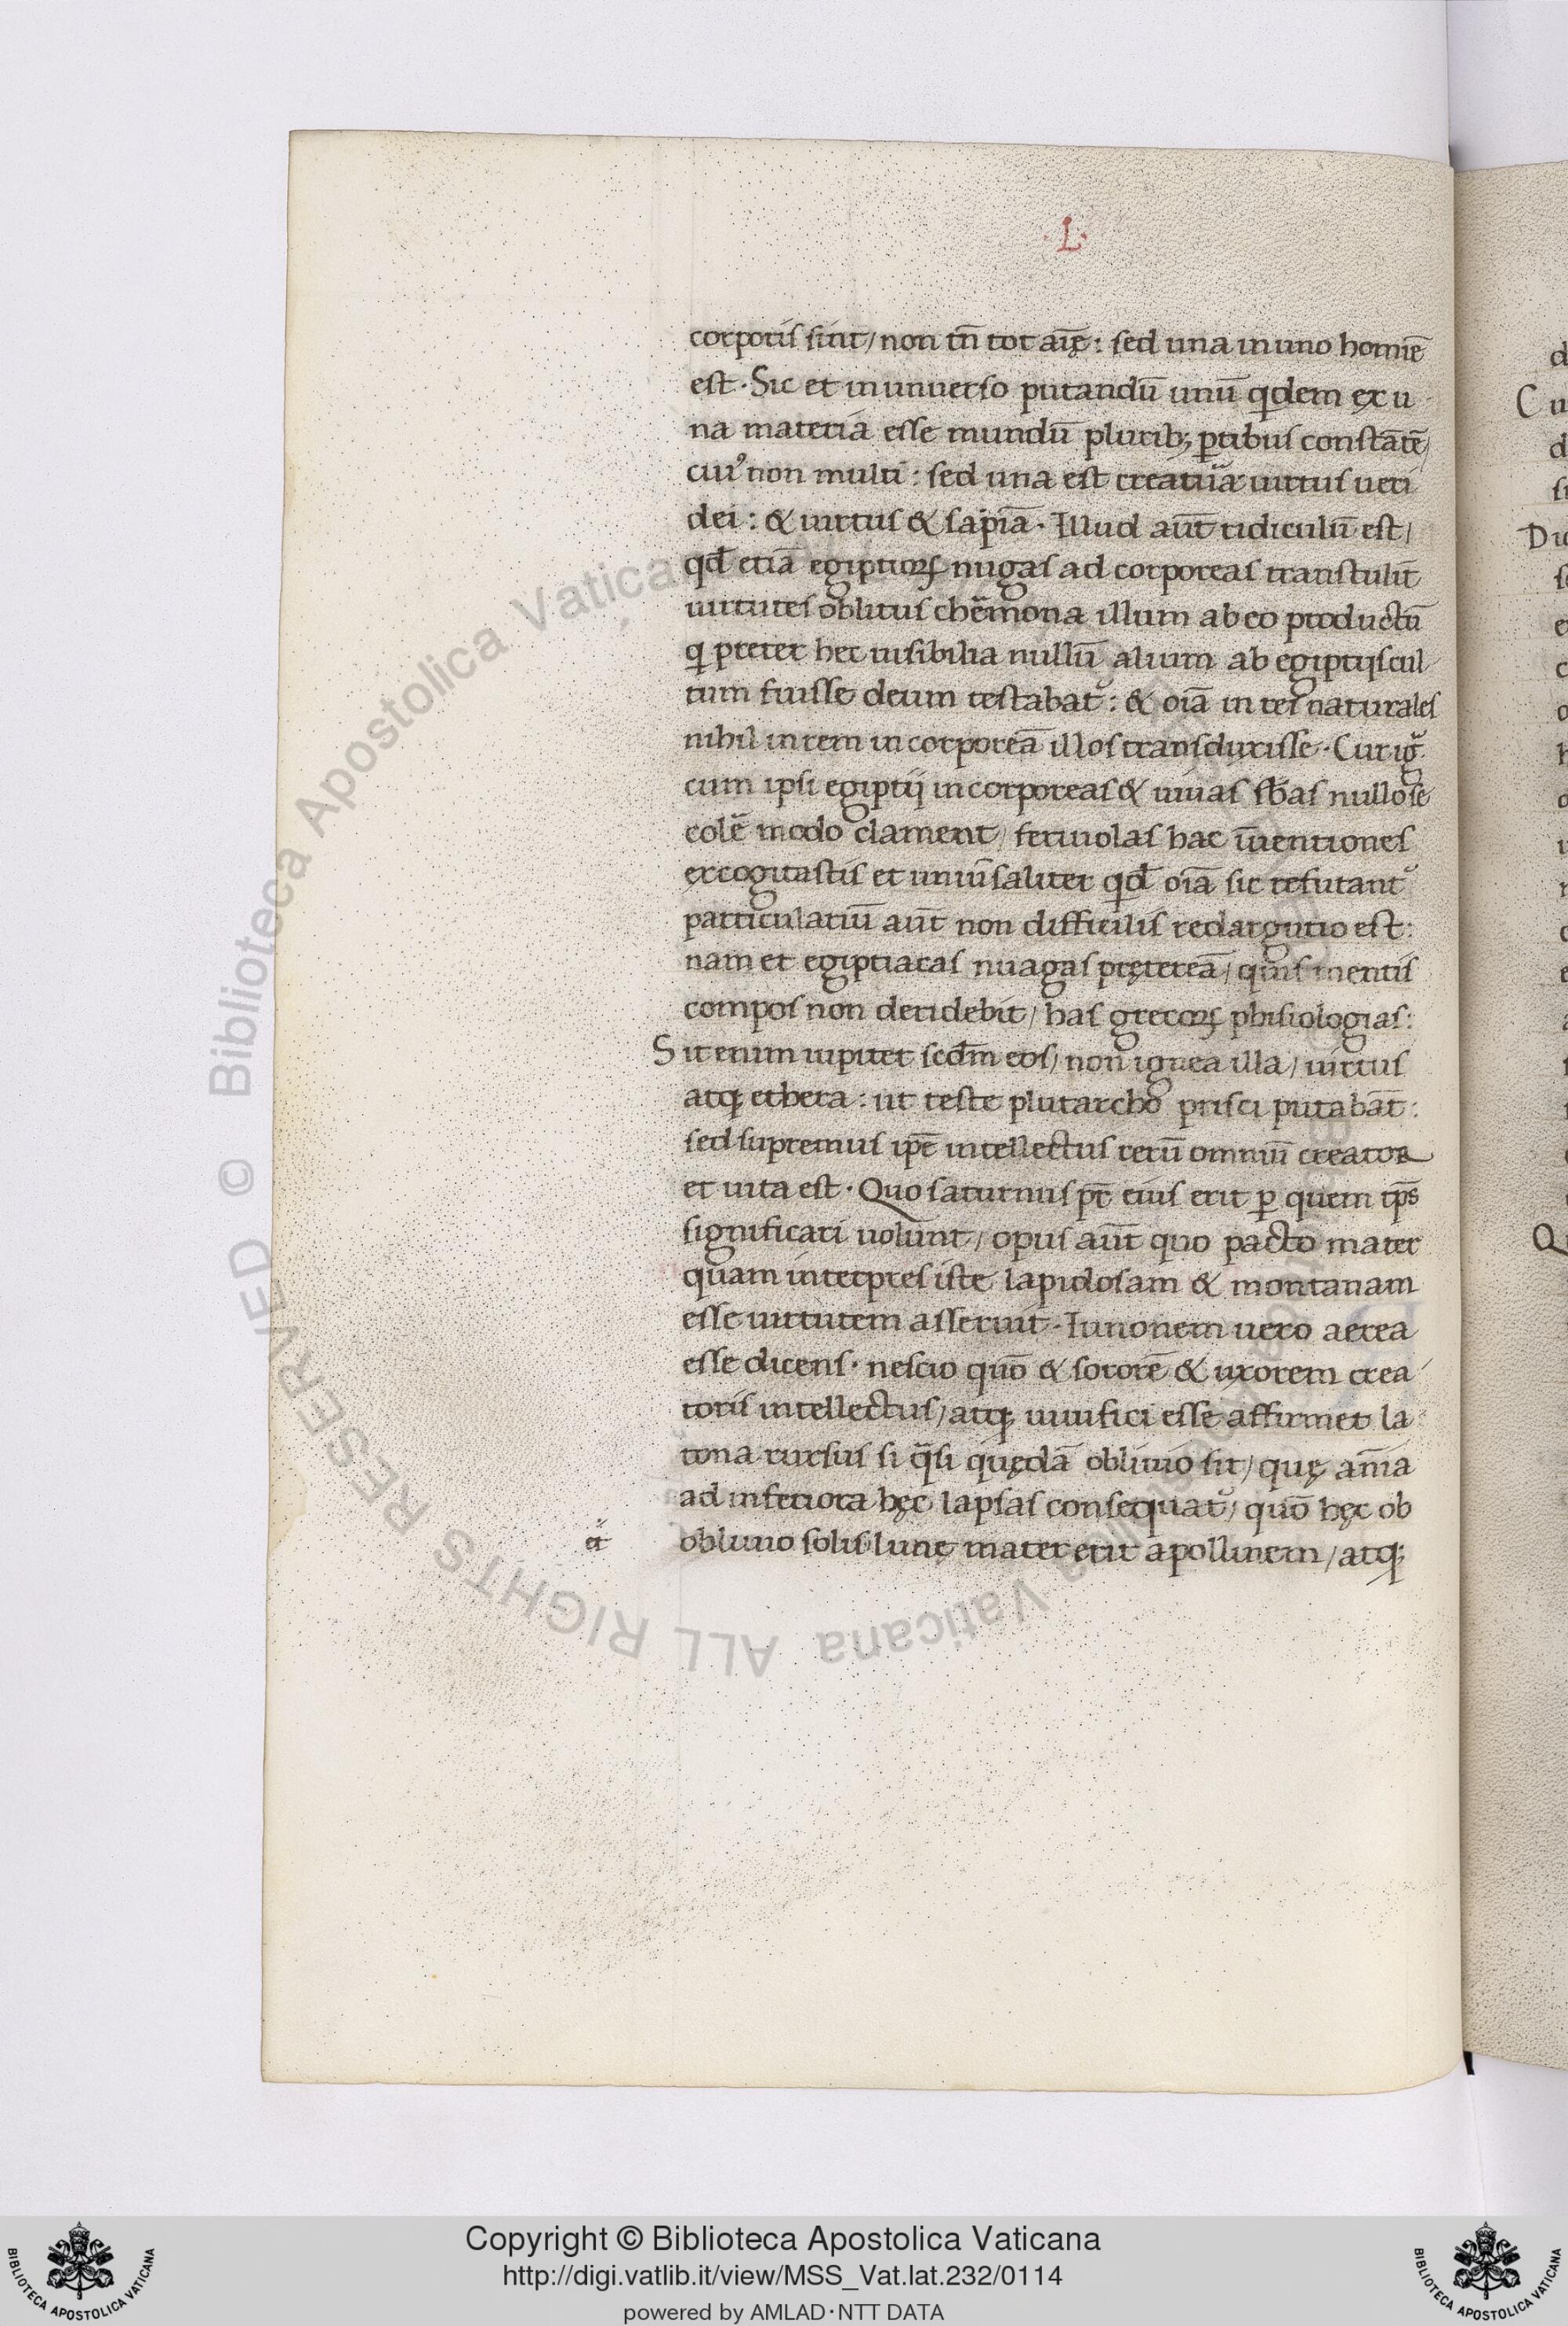 ·L·
corporis sint/ non tn̄ tot aīę: sed una in uno homīe
est. Sic et in uniuerso putandū unū qdem ex u
na materia esse mundū plurib; ptibus constātē/
cui᾽ non multi: sed una est creatura uirtus ueri
dei: & uirtus & sapīa. Illud aūt ridiculū est/
qd̄ etiā egiptioꝝ nugas ad corporeas transtulit
uirtutes oblitus chēmona illum ab eo productū
q preter hec uisibilia nullū alium ab egiptijs cul
tum fuisse deum testabat᾽: & oīa in res naturales
nihil in rem incorporeā illos transduxisse. Cur ig
cum ipsi egiptij incorporeas & uiuas sb̄as nullo se
colē modo clament/ feriuolas hac īuentiones
excogitastis et uniūsaliter qd̄ oīa sic refutant᾽
particulariū aūt non difficilis redargutio est:
nam et egiptiacas nuagas pręterea/ quis mentis
compos non deridebit/ has grecoꝝ phisiologias:
Sit enim iupiter scdm̄ eos/ non ignea illa/ uirtus
atq; ethera: ut teste plutarcho prisci putabāt:
sed supremus ipē intellectus rerū omniū creator
et uita est. Quo saturnus pr̄ eius erit ꝑ quem tp̄s
significari uolunt/ opus aūt quo pacto mater
quam interpres iste lapidosam & montanam
esse uirtutem asseruit. Iunonem uero aerea
esse dicens. nescio quō & sororē & uxorem crea
toris intellectus/ atq; uiuifici esse affirmet la
tona rursus si q̄si quędā obliuio sit/ quę anīa
ad inferiora hęc lapsas consequat᾽/ quō hęc ob
et obliuio solis lunę mater erit apollinem/ atq;
Copyright © Biblioteca Apostolica Vaticana
http://digi.vatlib.it/view/MSS_Vat.lat.232/0114
powered by AMLAD·NTT DATA
BIBLIOTECA APOSTOLICA VATICANA
BIBLIOTECA APOSTOLICA VATICANA
© Biblioteca Apostolica Vaticana ALL RIGHTS RESERVED